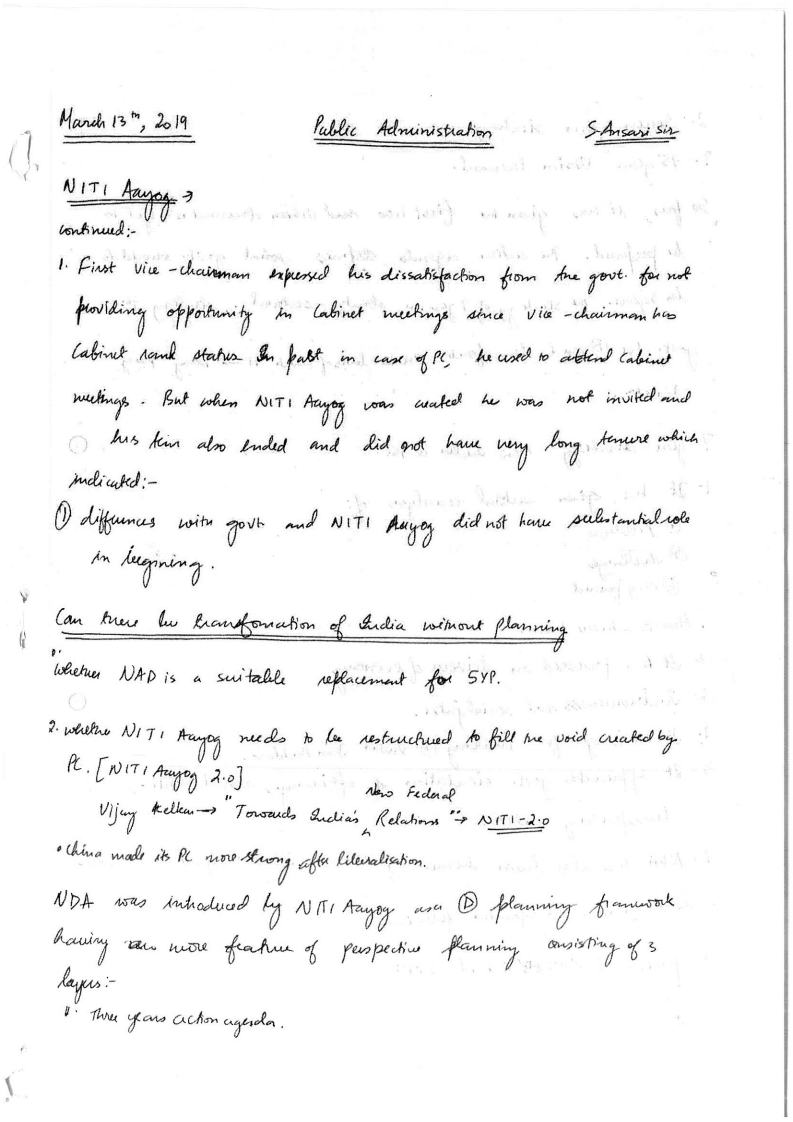 March 13th, 2019 Public Administration S.Ansari Sir
NITI Aayog →
continued:-
1. First vice-chairman expressed his dissatisfaction from the govt. for not
providing opportunity in Cabinet meetings since vice-chairman has
Cabinet rank status. In past in case of PC, he used to attend Cabinet
meetings. But when NITI Aayog was created he was not invited and
his term also ended and did not have very long tenure which
indicated:-
① differences with govt and NITI Aayog did not have substantial role
in begining.
Can there be transformation of India without planning
1. Whether NAD is a suitable replacement for 5YP.
2. Whether NITI Aayog needs to be restructured to fill the void created by
PC. [NITI Aayog 2.0]
Vijay Kelkar → "Towards India's New Federal Relations" → NITI-2.0
• China made its PC more strong after liberalisation.
NDA was introduced by NITI Aayog as a planning framework
having more feature of perspective planning consisting of 3
layers:-
1. Three years action agenda.